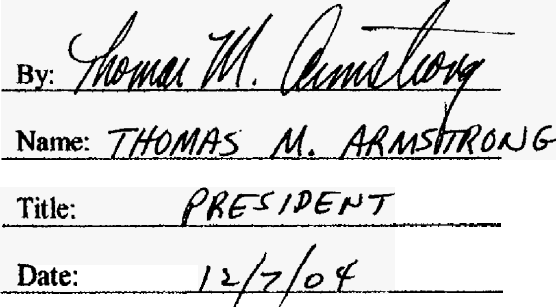 By: Thomas M. Armstrong
Name: THOMAS M. ARMSTRONG
Title: PRESIDENT
Date: 12/7/04